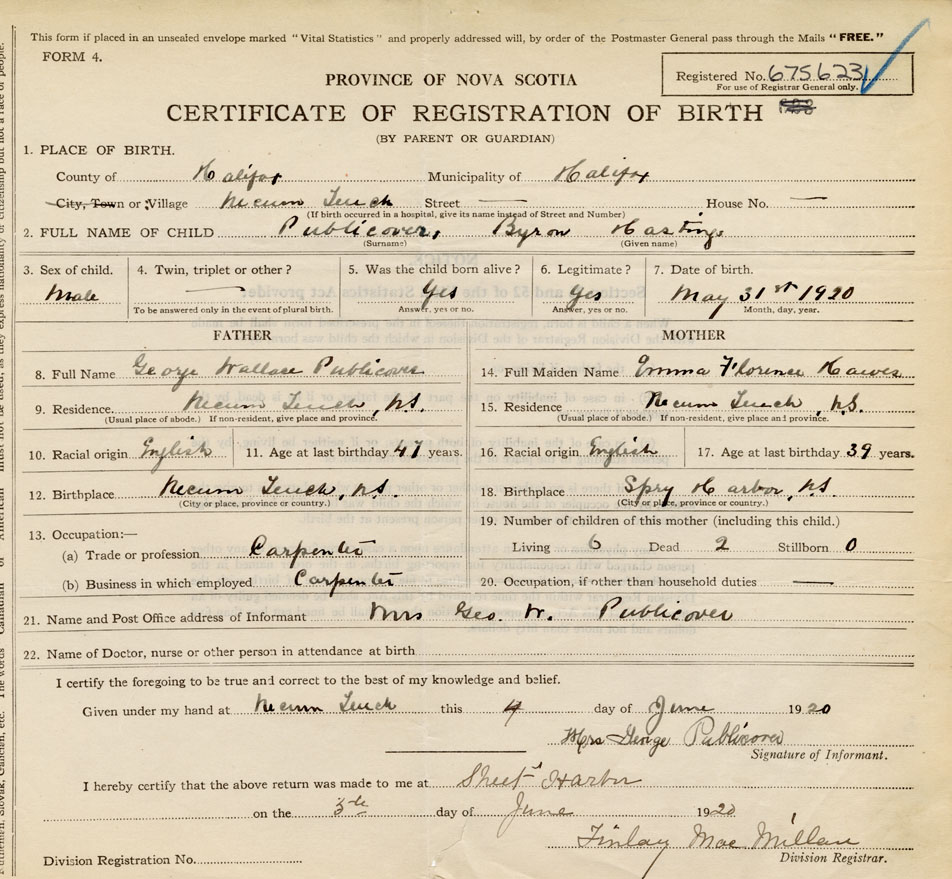 This form if placed in an unsealed envelope marked "Vital Statistics" and properly addressed will, by order of the Postmaster General pass through the Mails "FREE."
FORM 4.
Registered No. 675623
For use of Registrar General only.
PROVINCE OF NOVA SCOTIA
CERTIFICATE OF REGISTRATION OF BIRTH
(BY PARENT OR GUARDIAN)
1. PLACE OF BIRTH.
County of Halifax Municipality of Halifax
City, Town or Village Necum Teuch Street — House No. —
(If birth occurred in a hospital, give its name instead of Street and Number)
2. FULL NAME OF CHILD Publicover, Byron Hastings
(Surname) (Given name)
3. Sex of child. 4. Twin, triplet or other? 5. Was the child born alive? 6. Legitimate? 7. Date of birth.
Male — Yes Yes May 31st 1920
To be answered only in the event of plural birth. Answer, yes or no. Answer, yes or no. Month, day, year.
FATHER MOTHER
8. Full Name George Wallace Publicover 14. Full Maiden Name Emma Florence Hawes
9. Residence Necum Teuch, N.S. 15. Residence Necum Teuch, N.S.
(Usual place of abode.) If non-resident, give place and province. (Usual place of abode.) If non-resident, give place and province.
10. Racial origin English 11. Age at last birthday 47 years. 16. Racial origin English 17. Age at last birthday 39 years.
12. Birthplace Necum Teuch, N.S. 18. Birthplace Spry Harbor, N.S.
(City or place, province or country.) (City or place, province or country.)
13. Occupation:— 19. Number of children of this mother (including this child.)
(a) Trade or profession Carpenter Living 6 Dead 2 Stillborn 0
(b) Business in which employed Carpenter 20. Occupation, if other than household duties —
21. Name and Post Office address of Informant Mrs Geo. W. Publicover
22. Name of Doctor, nurse or other person in attendance at birth
I certify the foregoing to be true and correct to the best of my knowledge and belief.
Given under my hand at Necum Teuch this 4 day of June 1920
Mrs George Publicover
Signature of Informant.
I hereby certify that the above return was made to me at Sheet Harbor
on the day of June 1920
Finlay MacMillan
Division Registrar.
Division Registration No.